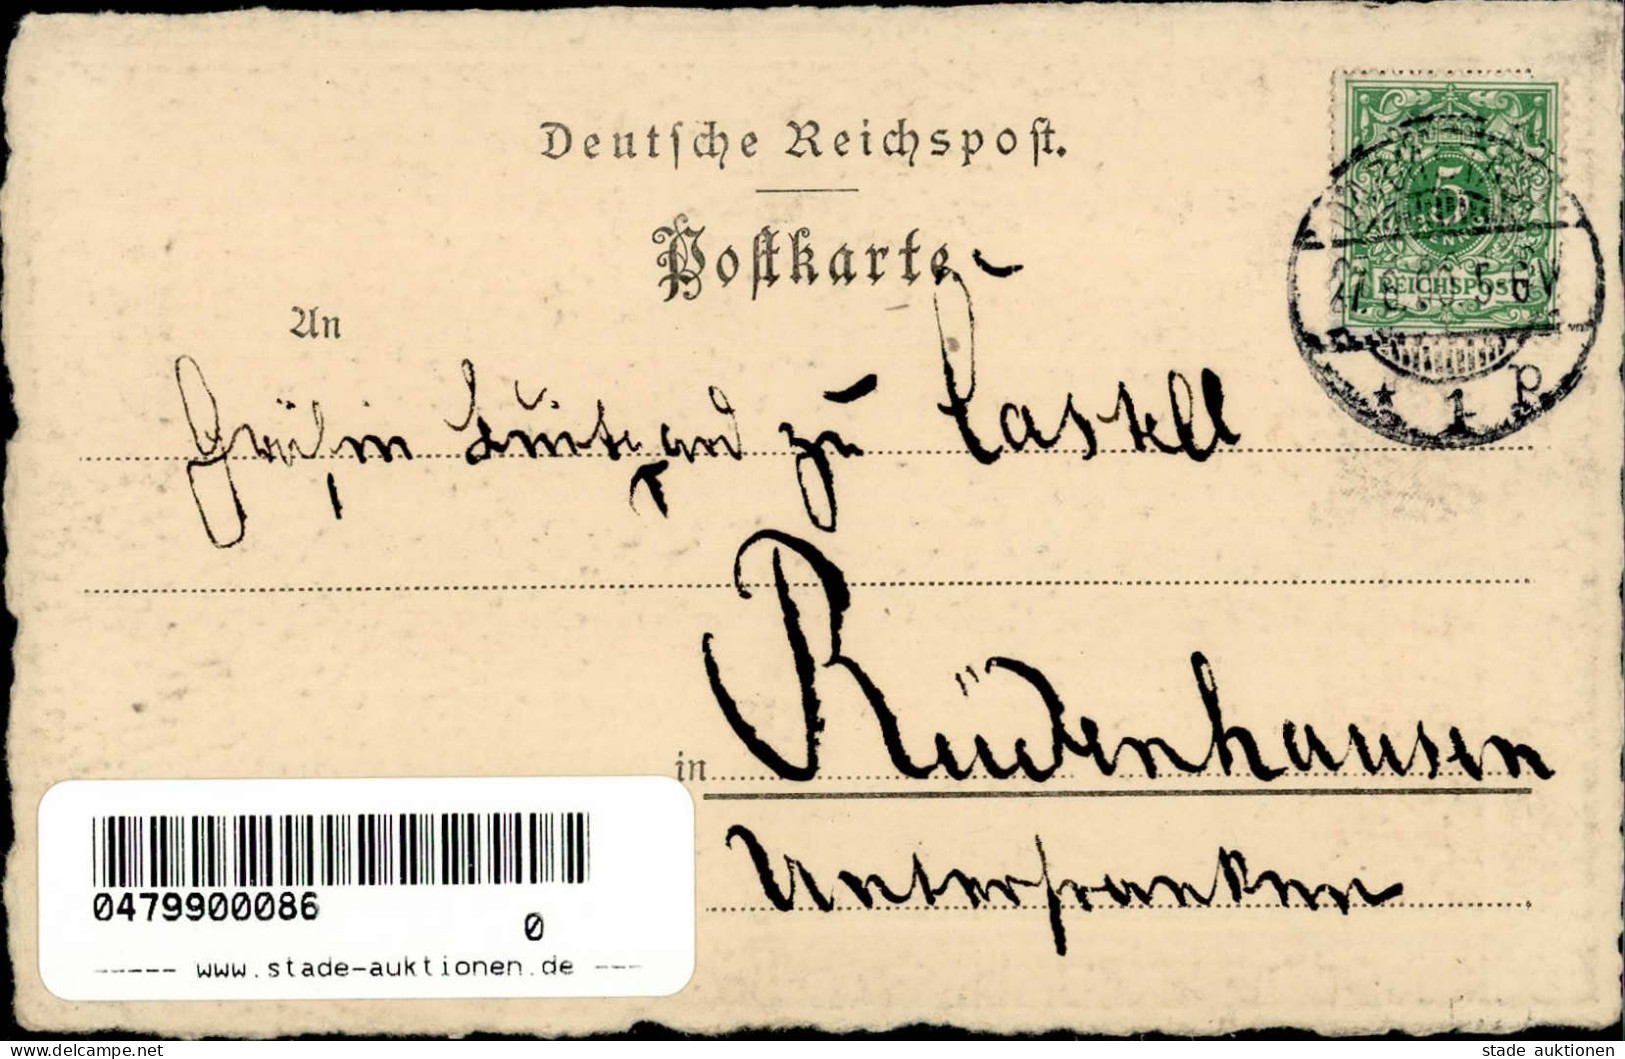 Deutsche Reichspost.
Postkarte
An
Gräfin Luitgard zu Castell
in Rüdenhausen
Unterfranken
5
REICHSPOST
5-6V
* 1 P
0479900086
0
----- www.stade-auktionen.de ---
stade auktionen